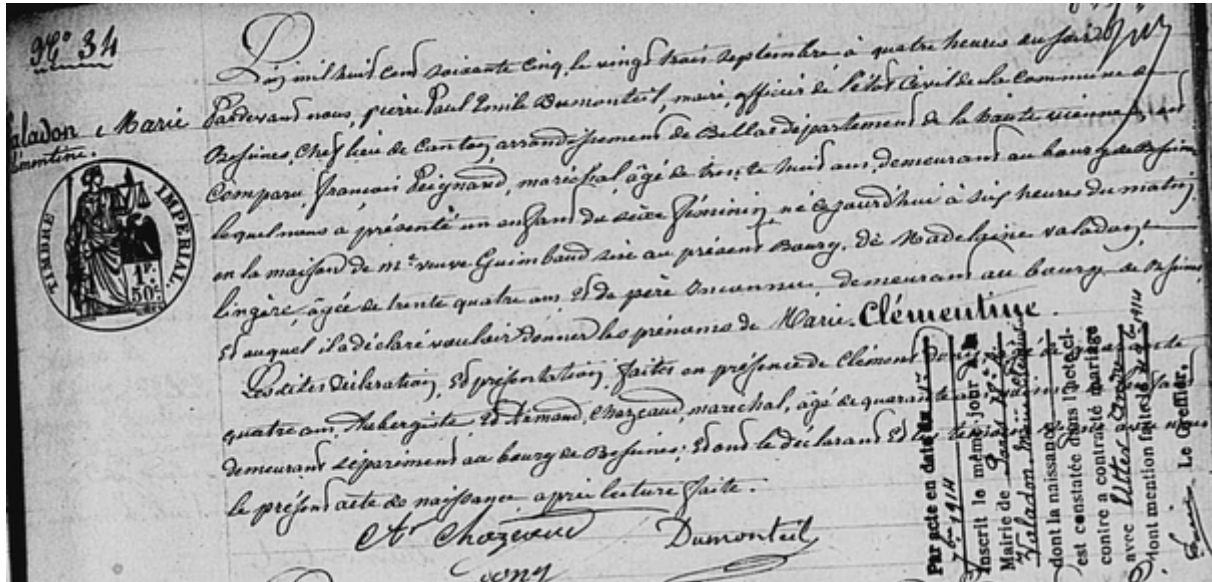 N° 34
Valadon Marie
Clémentine.
TIMBRE IMPERIAL
1F.
50c.
L'an mil huit cent soixante cinq, le vingt trois septembre à quatre heures du soir
Pardevant nous, pierre Paul Emile Dumonteil, maire, officier de l'état Civil de la Commune de
Bessines, Chef lieu de Canton, arrondissement de Bellac département de la haute vienne, est
Comparu, françois Peignaud, maréchal, âgé de trente huit ans, demeurant au bourg de Bessines
lequel nous a présenté un enfant du sexe féminin né cejourd'hui à six heures du matin
en la maison de Me veuve Guimbaud sise au présent Bourg, de Madeleine valadon,
lingère, âgée de trente quatre ans et de père inconnu, demeurant au bourg de Bessines,
Et auquel il a déclaré vouloir donner les prénoms de Marie-Clémentine.
Lesdites déclaration, et présentation, faites en présence de Clément
quatre ans, Aubergiste, et Armand, Chazeaud, maréchal, âgé de quarante
demeurant séparément au bourg de Bessines; Et ont le déclarant et les témoins nous
le présent acte de naissance, après lecture faite.
Ar Chazeaud
Dumonteil
Dony
Par acte en date du 1er
7bre 1914
Inscrit le même jour
Mairie de Paris
Valadon Marie Clémentine
dont la naissance
est constatée dans l'acte ci-
contre a contracté mariage
avec Utter André
Dont mention faite le 1914
Le Greffier.